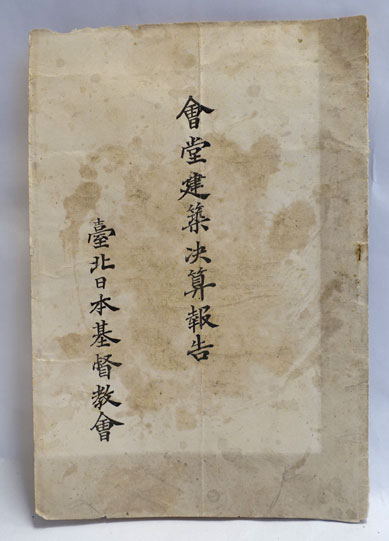 會堂建築決算報告
臺北日本基督教會